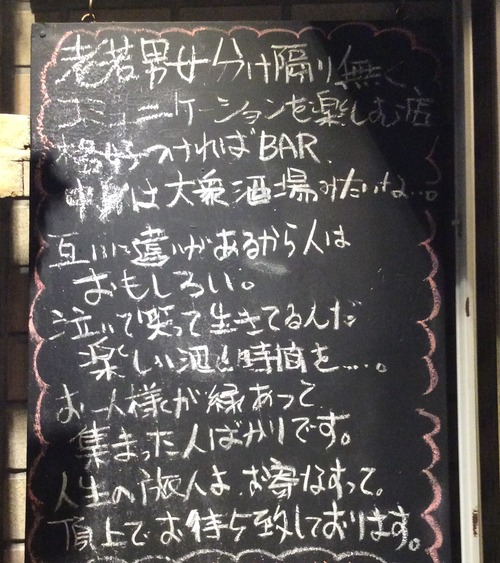 老若男女分け隔り無く
コミュニケーションを楽しむ店
格好つければBAR、
中身は大衆酒場みたいな…。
互いに違いがあるから人は
おもしろい。
泣いて笑って生きてるんだ
楽しい酒と時間を…。
お一人様が縁あって
集まった人ばかりです。
人生の旅人よ、お寄なすって。
頂上でお待ち致しております。